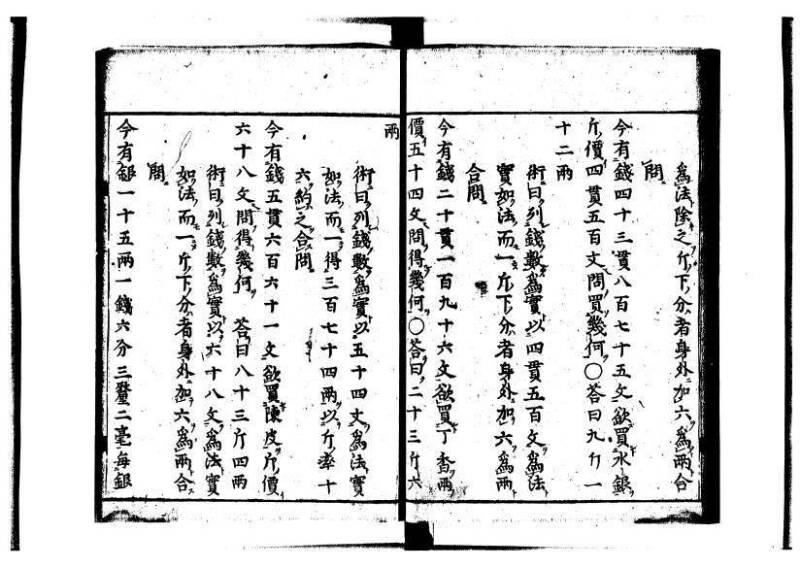 為法除之斤下分者身外加六為兩合
問
今有錢四十三貫八百七十五文欲買水銀
斤價四貫五百文問買幾何〇荅曰九斤一
十二兩
術曰列錢數為實以四貫五百文為法
實如法而一斤下分者身外加六為兩
合問
今有錢二十貫一百九十六文欲買丁香兩
價五十四文問得幾何〇荅曰二十三斤六
兩
術曰列錢數為實以五十四文為法實
如法而一得三百七十四兩以斤率十
六約之合問
今有錢五貫六百六十一文欲買陳皮斤價
六十八文問得幾何 荅曰八十三斤四兩
術曰列錢數為實以六十八文為法實
如法而一斤下分者身外加六為兩合
問
今有銀一十五兩一錢六分三釐二毫每銀